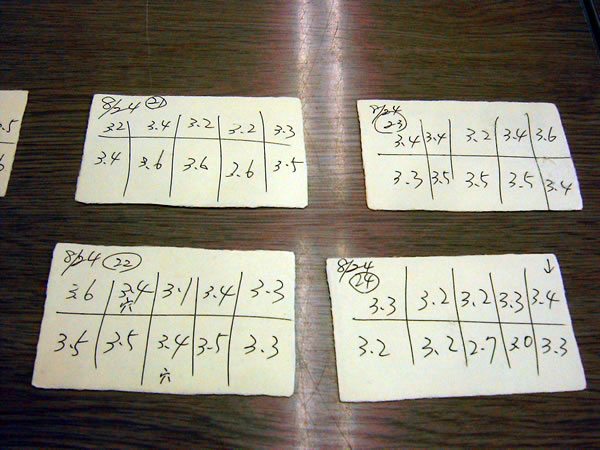 .5
6
8/24 21
3.2 3.4 3.2 3.2 3.3
3.4 3.6 3.6 3.6 3.5
8/24 23
3.4 3.4 3.2 3.4 3.6
3.3 3.5 3.5 3.5 3.4
8/24 22
3.6 3.4 3.1 3.4 3.3
六
3.5 3.5 3.4 3.5 3.3
六
8/24 ↓
24
3.3 3.2 3.2 3.3 3.4
3.2 3.2 2.7 3.0 3.3